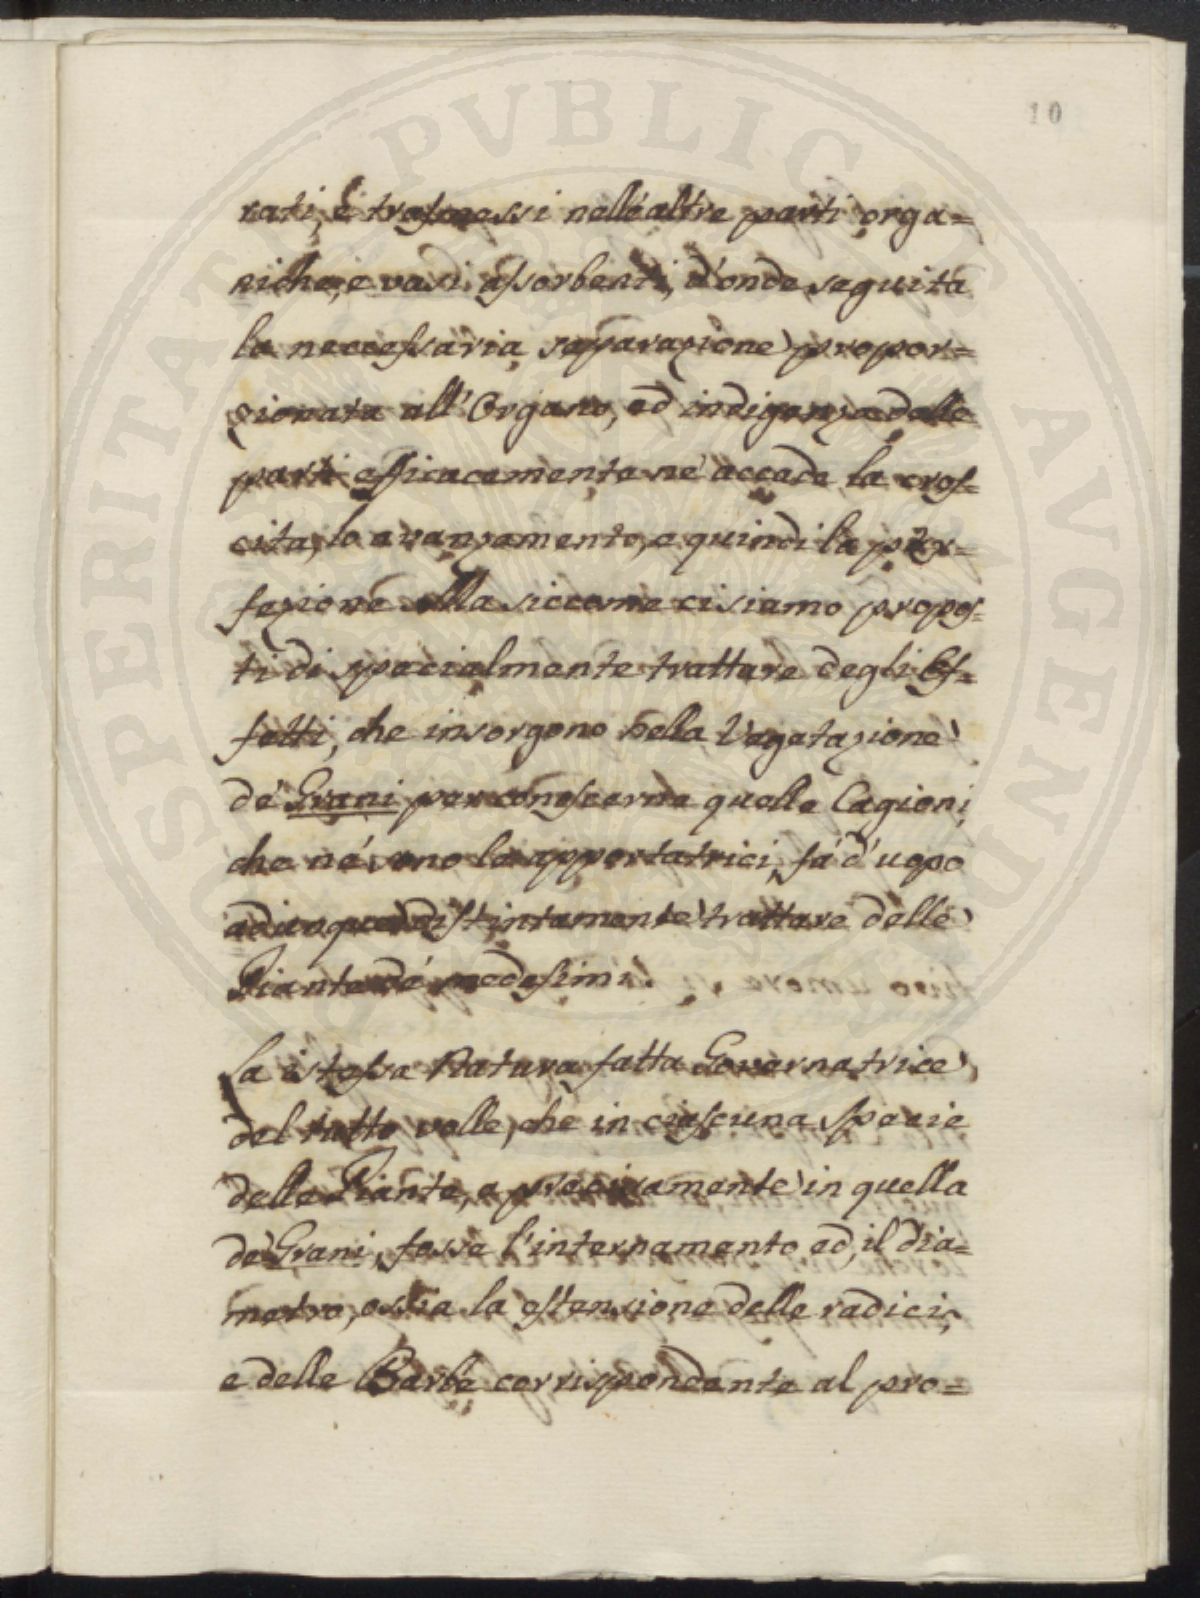 10
rati, e trasmessi nell'altre parti orga=
niche, e vasi assorbenti, d'onde seguita
la neccessaria separazione propor=
zionata all'Organo, ed indigenza delle
parti efficacemente né accade la cres=
cita, lo avanzamento, e quindi la per=
fezione alla siccome ci siamo propos=
ti di specialmente trattare degli Ef=
fetti, che insorgono nella Vegetazione
de' Grani per conoscerne quelle Cagioni,
che né sono le apportatrici, fá d'uopo
adunque distintamente trattare delle
Piante dé medesimi.
La istessa Natura fatta Governatrice
del tutto volle, che in ciascuna Specie
delle Piante, e precisamente in quella
de' Grani, fosse l'internamento ed il dia=
metro, ossia la estensione delle radici,
e delle Barbe corrispondente al pro=
PROSPERITATI PVBLICAE AVGENDAE